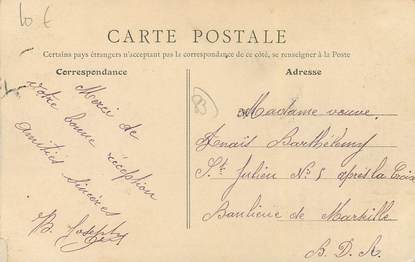 10 €
CARTE POSTALE
Certains pays étrangers n'acceptant pas la correspondance de ce côté, se renseigner à la Poste
Correspondance
Merci de
votre bonne
réception
amitiés sincères
B. Joseph
Adresse
Madame veuve
Anaïs Barthélemy
St. Julien N° 5 après la Croix
Banlieue de Marseille
B. D. R.